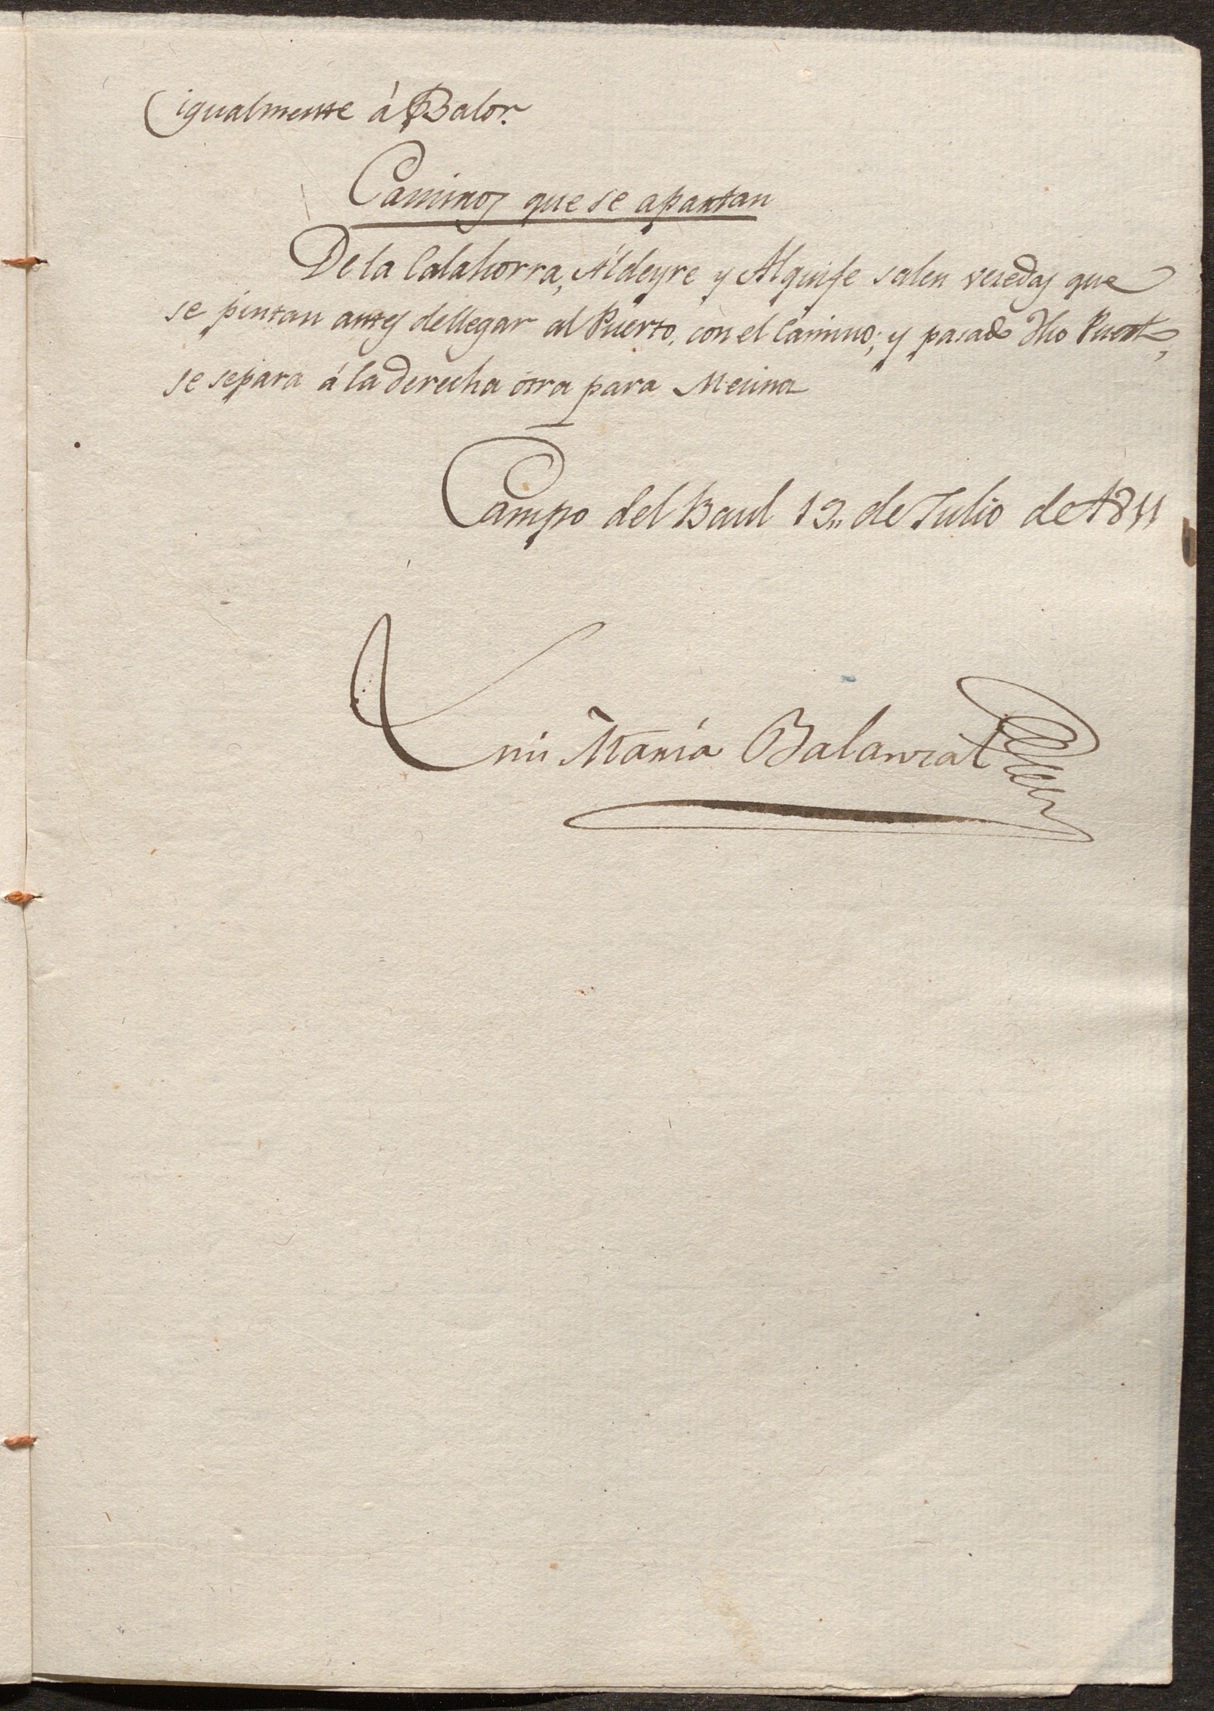 igualmente á Balor.
Caminos que se apartan
De la Calahorra, Aldeyre y Alquife salen veredas que
se pintan antes dellegar al Puerto, con el Camino; y pasado dho Puerto,
se separa á la derecha otra para Mecina
Campo del Baul 12,, de Julio de 1811
Luis María Balanzat